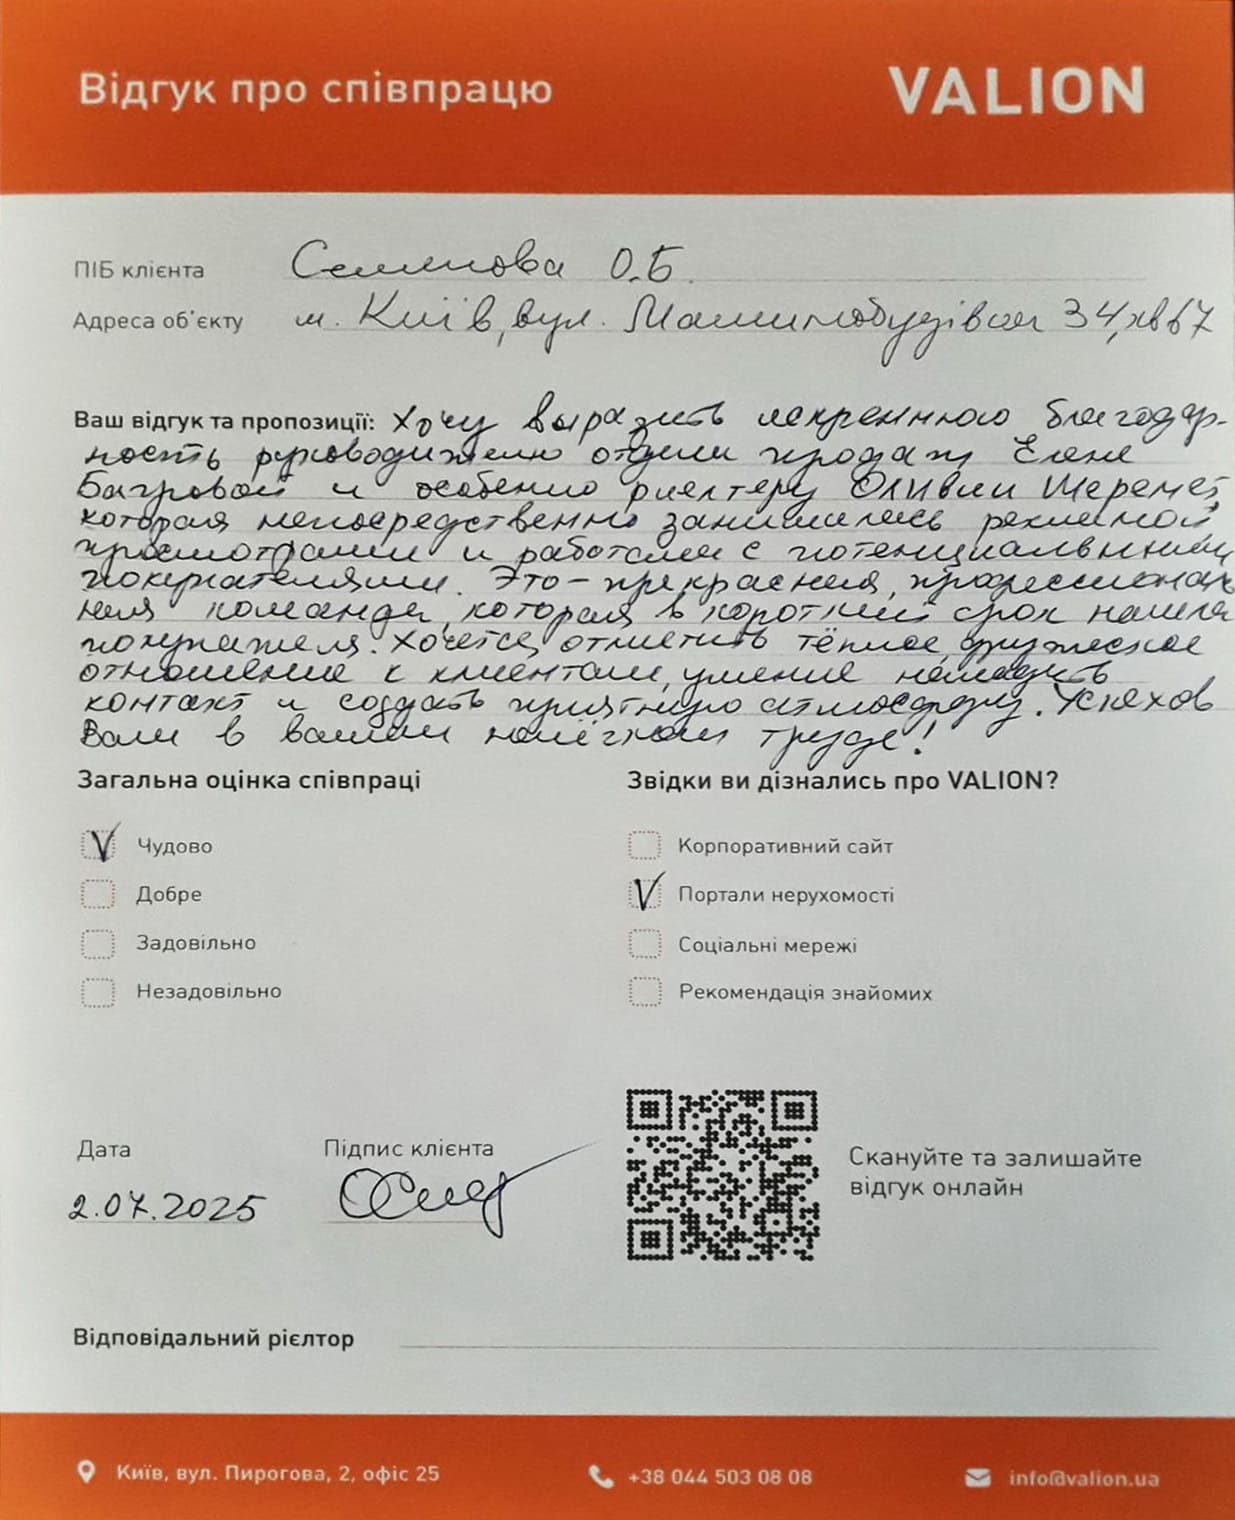 Відгук про співпрацю
VALION
ПІБ клієнта Семенова О.Б.
Адреса об'єкту м. Київ, вул. Машинобудівна 34, кв 67
Ваш відгук та пропозиції: Хочу выразить искреннюю благодар-
ность руководителю отдела продаж Елене
Багровой и особенно риелтеру Оливии Шеремет,
которая непосредственно занималась рекламой
просмотрами и работала с потенциальными
покупателями. Это - прекрасная, профессиональ
ная команда, которая в короткий срок нашла
покупателя. Хочется отметить тёплое, дружеское
отношение к клиентам, умение наладить
контакт и создать приятную атмосферу. Успехов
Вам в вашем нелёгком труде!
Загальна оцінка співпраці
Звідки ви дізнались про VALION?
V Чудово
Корпоративний сайт
Добре
V Портали нерухомості
Задовільно
Соціальні мережі
Незадовільно
Рекомендація знайомих
Дата
Підпис клієнта
2.07.2025
Скануйте та залишайте
відгук онлайн
Відповідальний рієлтор
Київ, вул. Пирогова, 2, офіс 25
+38 044 503 08 08
info@valion.ua